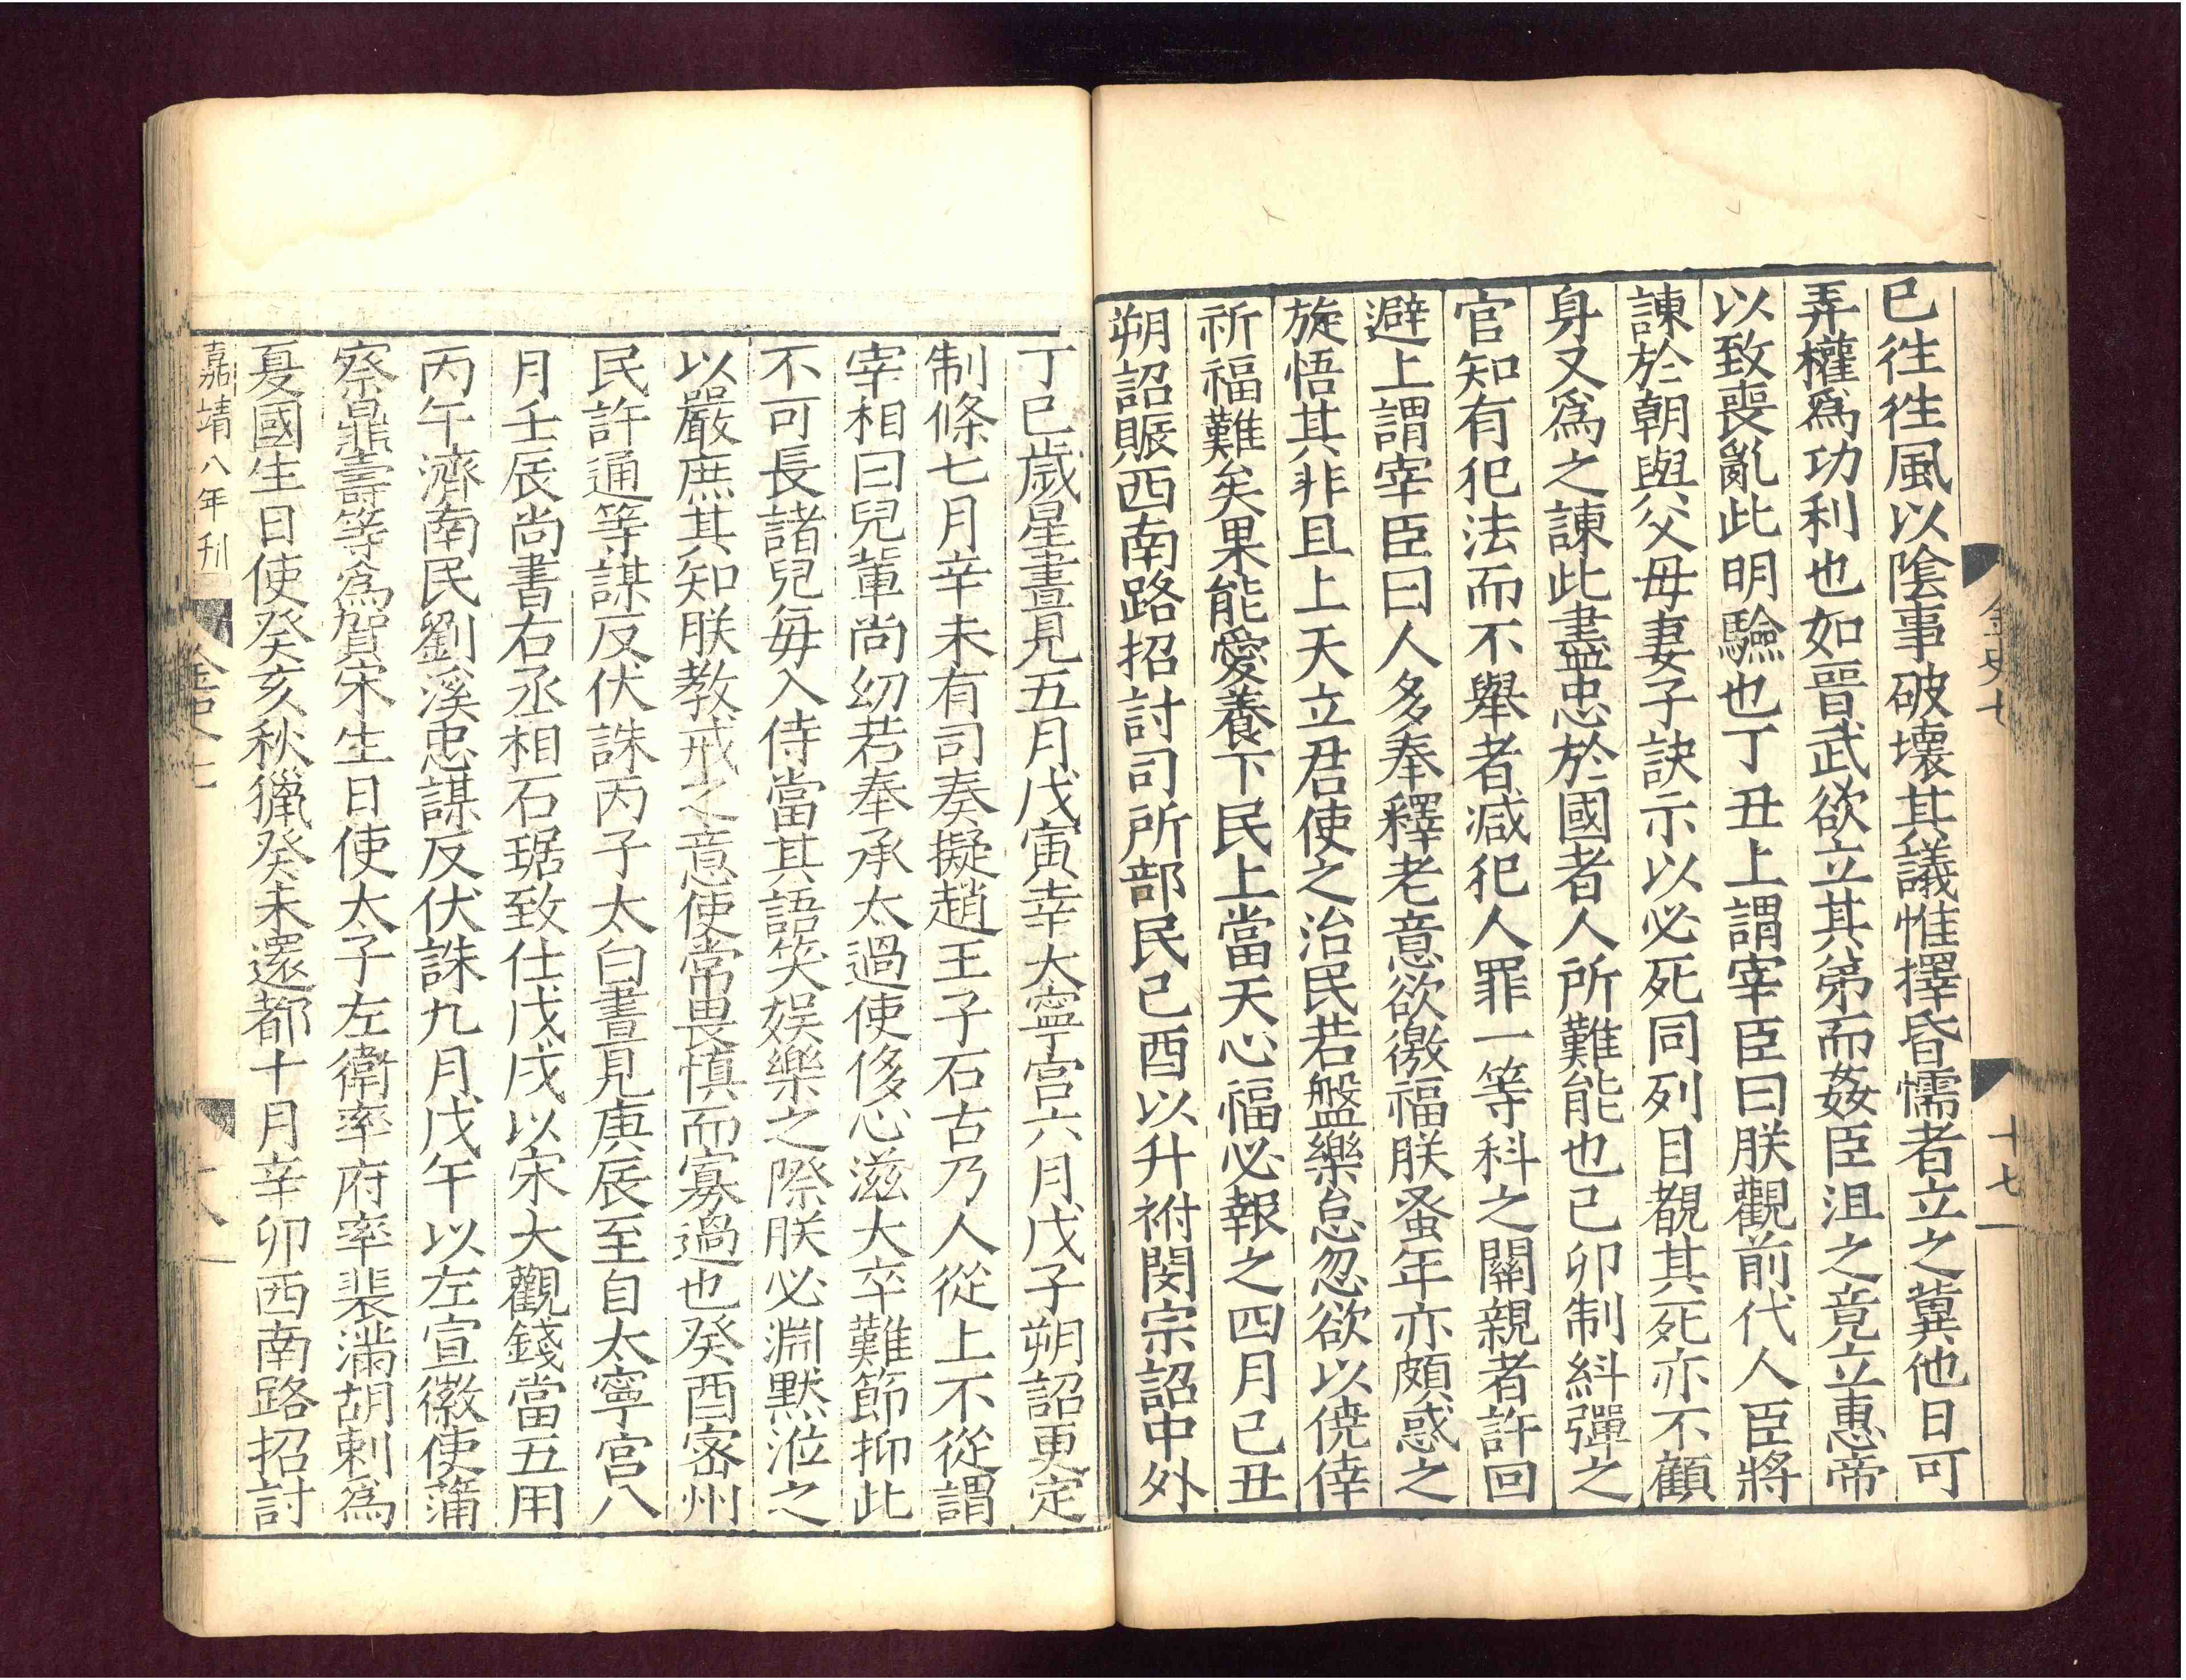 已徃徃風以隂事破壞其議惟擇昏懦者立之冀他日可
弄權爲功利也如晉武欲立其弟而姦臣沮之竟立惠帝
以致喪亂此明驗也丁丑上謂宰臣曰朕觀前代人臣將
諫於朝與父母妻子訣示以必死同列目覩其死亦不顧
身又爲之諫此盡忠於國者人所難能也己卯制糾彈之
官知有犯法而不舉者减犯人罪一等科之關親者許回
避上謂宰臣曰人多奉釋老意欲徼福朕蚤年亦頗惑之
旋悟其非且上天立君使之治民若盤樂怠忽欲以僥倖
祈福難矣果能愛養下民上當天心福必報之四月己丑
朔詔賑西南路招討司所部民己酉以升祔閔宗詔中外
金史七
十七
丁巳歲星晝見五月戊寅幸太寧宮六月戊子朔詔更定
制條七月辛未有司奏擬趙王子石古乃人從上不從謂
宰相曰兒輩尚幼若奉承太過使侈心滋大卒難節抑此
不可長諸兒每入侍當其語笑娛樂之際朕必淵默涖之
以嚴庶其知朕教戒之意使常畏慎而寡過也癸酉密州
民許通等謀反伏誅丙子太白晝見庚辰至自太寧宮八
月壬辰尚書右丞相石琚致仕戊戌以宋大觀錢當五用
丙午濟南民劉溪忠謀反伏誅九月戊午以左宣徽使蒲
察鼎壽等爲賀宋生日使太子左衛率府率裴滿胡剌爲
夏國生日使癸亥秋獵癸未還都十月辛卯西南路招討
嘉靖八年刊
金史七
十八